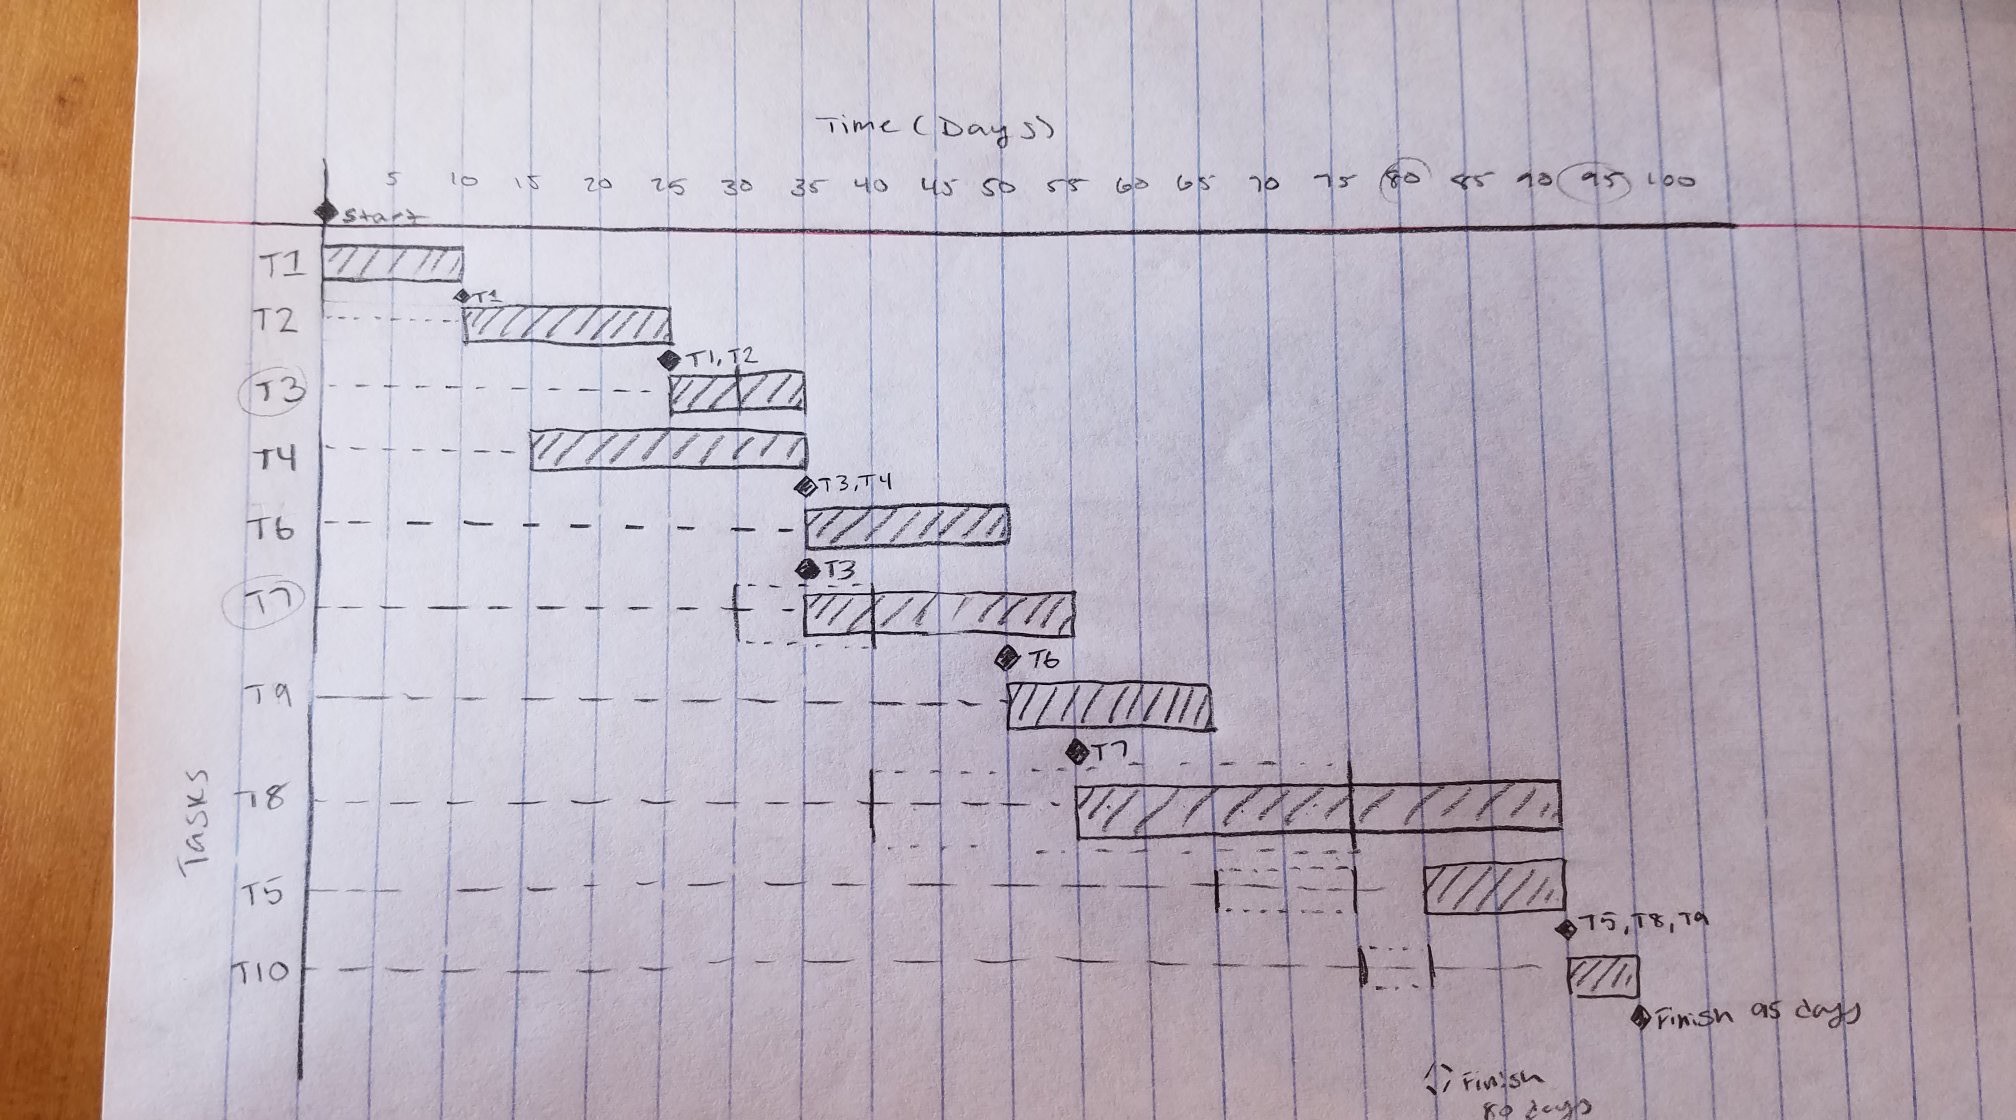 Time (Days)
5 10 15 20 25 30 35 40 45 50 55 60 65 70 75 80 85 90 95 100
Start
T1
T1
T2
T1, T2
T3
T4
T3, T4
T6
T3
T7
T6
T9
T7
T8
Tasks
T5
T5, T8, T9
T10
Finish 95 days
Finish
80 days